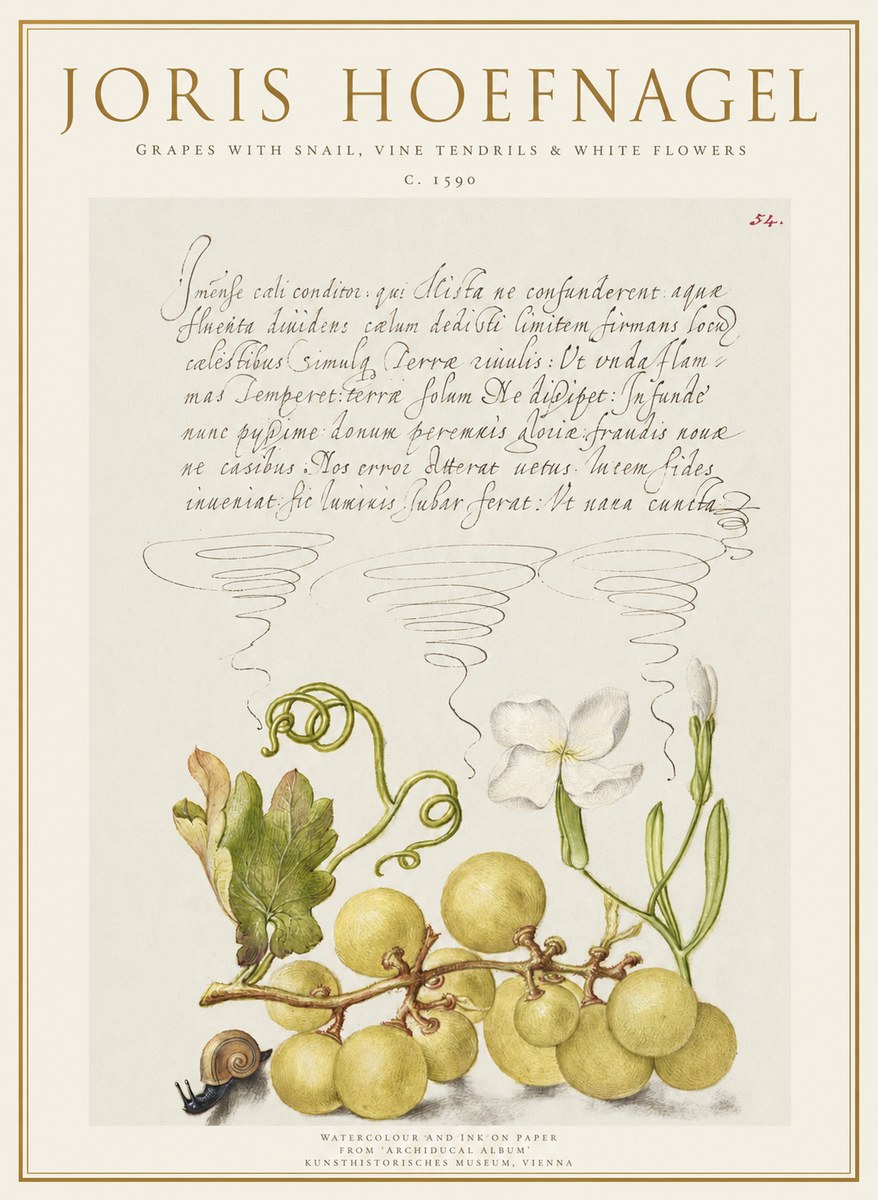 JORIS HOEFNAGEL
GRAPES WITH SNAIL, VINE TENDRILS & WHITE FLOWERS
C. 1590
54.
Imẽnse cæli conditor: qui Mista ne confunderent aquæ
fluenta diuidens cælum dedisti limitem firmans locũ
cælestibus Simulq Terræ riuulis: Ut vnda flam=
mas Temperet: terræ solum Ne dissipet: Infunde
nunc pyssime donum perennis gloriæ: fraudis nouæ
ne casibus: Nos error Atterat uetus. lucem fides
inueniat: sic luminis Jubar ferat: Vt uana cuncta
WATERCOLOUR AND INK ON PAPER
FROM 'ARCHIDUCAL ALBUM'
KUNSTHISTORISCHES MUSEUM, VIENNA